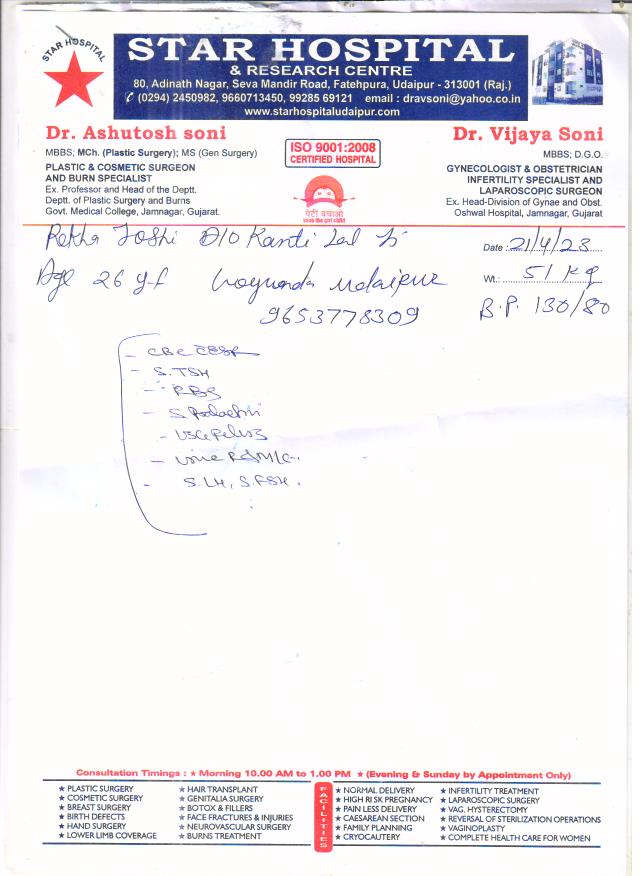 STAR HOSPITAL
STAR HOSPITAL
& RESEARCH CENTRE
80, Adinath Nagar, Seva Mandir Road, Fatehpura, Udaipur - 313001 (Raj.)
✆ (0294) 2450982, 9660713450, 99285 69121 email : dravsoni@yahoo.co.in
www.starhospitaludaipur.com
Dr. Ashutosh soni
MBBS; MCh. (Plastic Surgery); MS (Gen Surgery)
PLASTIC & COSMETIC SURGEON
AND BURN SPECIALIST
Ex. Professor and Head of the Deptt.
Deptt. of Plastic Surgery and Burns
Govt. Medical College, Jamnagar, Gujarat.
ISO 9001:2008
CERTIFIED HOSPITAL
बेटी बचाओ
Dr. Vijaya Soni
MBBS; D.G.O.
GYNECOLOGIST & OBSTETRICIAN
INFERTILITY SPECIALIST AND
LAPAROSCOPIC SURGEON
Ex. Head-Division of Gynae and Obst.
Oshwal Hospital, Jamnagar, Gujarat
Rekha Joshi D/O Kanti Lal Ji
Date : 21/4/23
Age 26 y.f Udaipur
Wt.: 51 kg
9653778309
B.P. 130/80
- CBC ESR
- S. TSH
- RBS
- S. Prolactin
- USG Pelvis
- Urine R/M/C.
- S. LH, S. FSH.
Consultation Timings : ★ Morning 10.00 AM to 1.00 PM ★ (Evening & Sunday by Appointment Only)
★ PLASTIC SURGERY
★ COSMETIC SURGERY
★ BREAST SURGERY
★ BIRTH DEFECTS
★ HAND SURGERY
★ LOWER LIMB COVERAGE
★ HAIR TRANSPLANT
★ GENITALIA SURGERY
★ BOTOX & FILLERS
★ FACE FRACTURES & INJURIES
★ NEUROVASCULAR SURGERY
★ BURNS TREATMENT
FACILITIES
★ NORMAL DELIVERY
★ HIGH RI SK PREGNANCY
★ PAIN LESS DELIVERY
★ CAESAREAN SECTION
★ FAMILY PLANNING
★ CRYOCAUTERY
★ INFERTILITY TREATMENT
★ LAPAROSCOPIC SURGERY
★ VAG. HYSTERECTOMY
★ REVERSAL OF STERILIZATION OPERATIONS
★ VAGINOPLASTY
★ COMPLETE HEALTH CARE FOR WOMEN